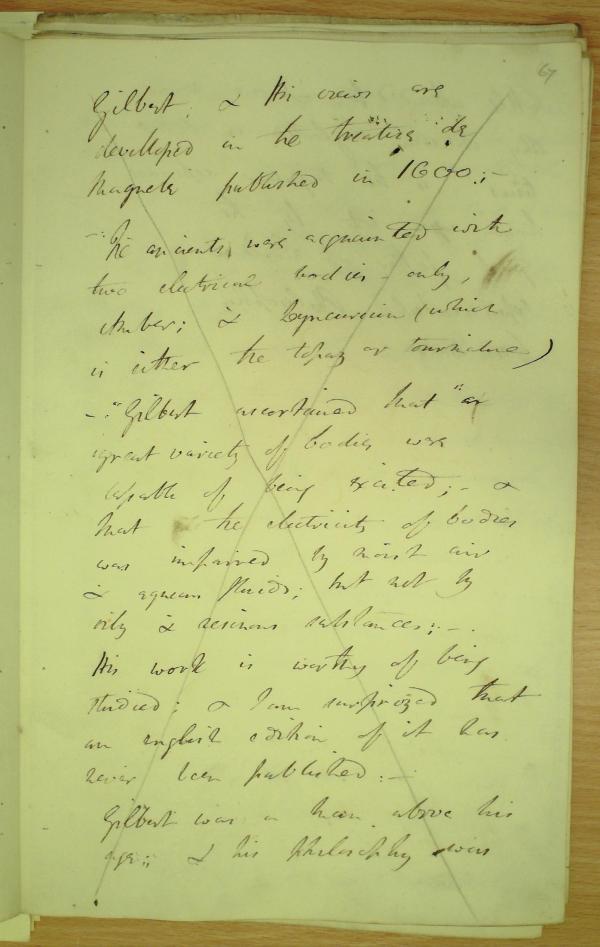 67
Gilbert; & His views are
developed in the treatise "de
Magnete published in 1600:; -
- "The ancients, were acquainted with
two electrical bodies - only,
Amber; & Lyncurium (which
is either the topaz or tourmaline)
- :"Gilbert ascertained that "a
great variety of bodies were
capable of being excited; - &
that the electricity of bodies
was impaired by moist air
& aqueous fluids; but not by
oily & resinous substances:; -.
His work is worthy of being
studied; & I am surprized that
an english edition of it has
never been published: -
Gilbert was a Man above his
age:; & his philosophy was